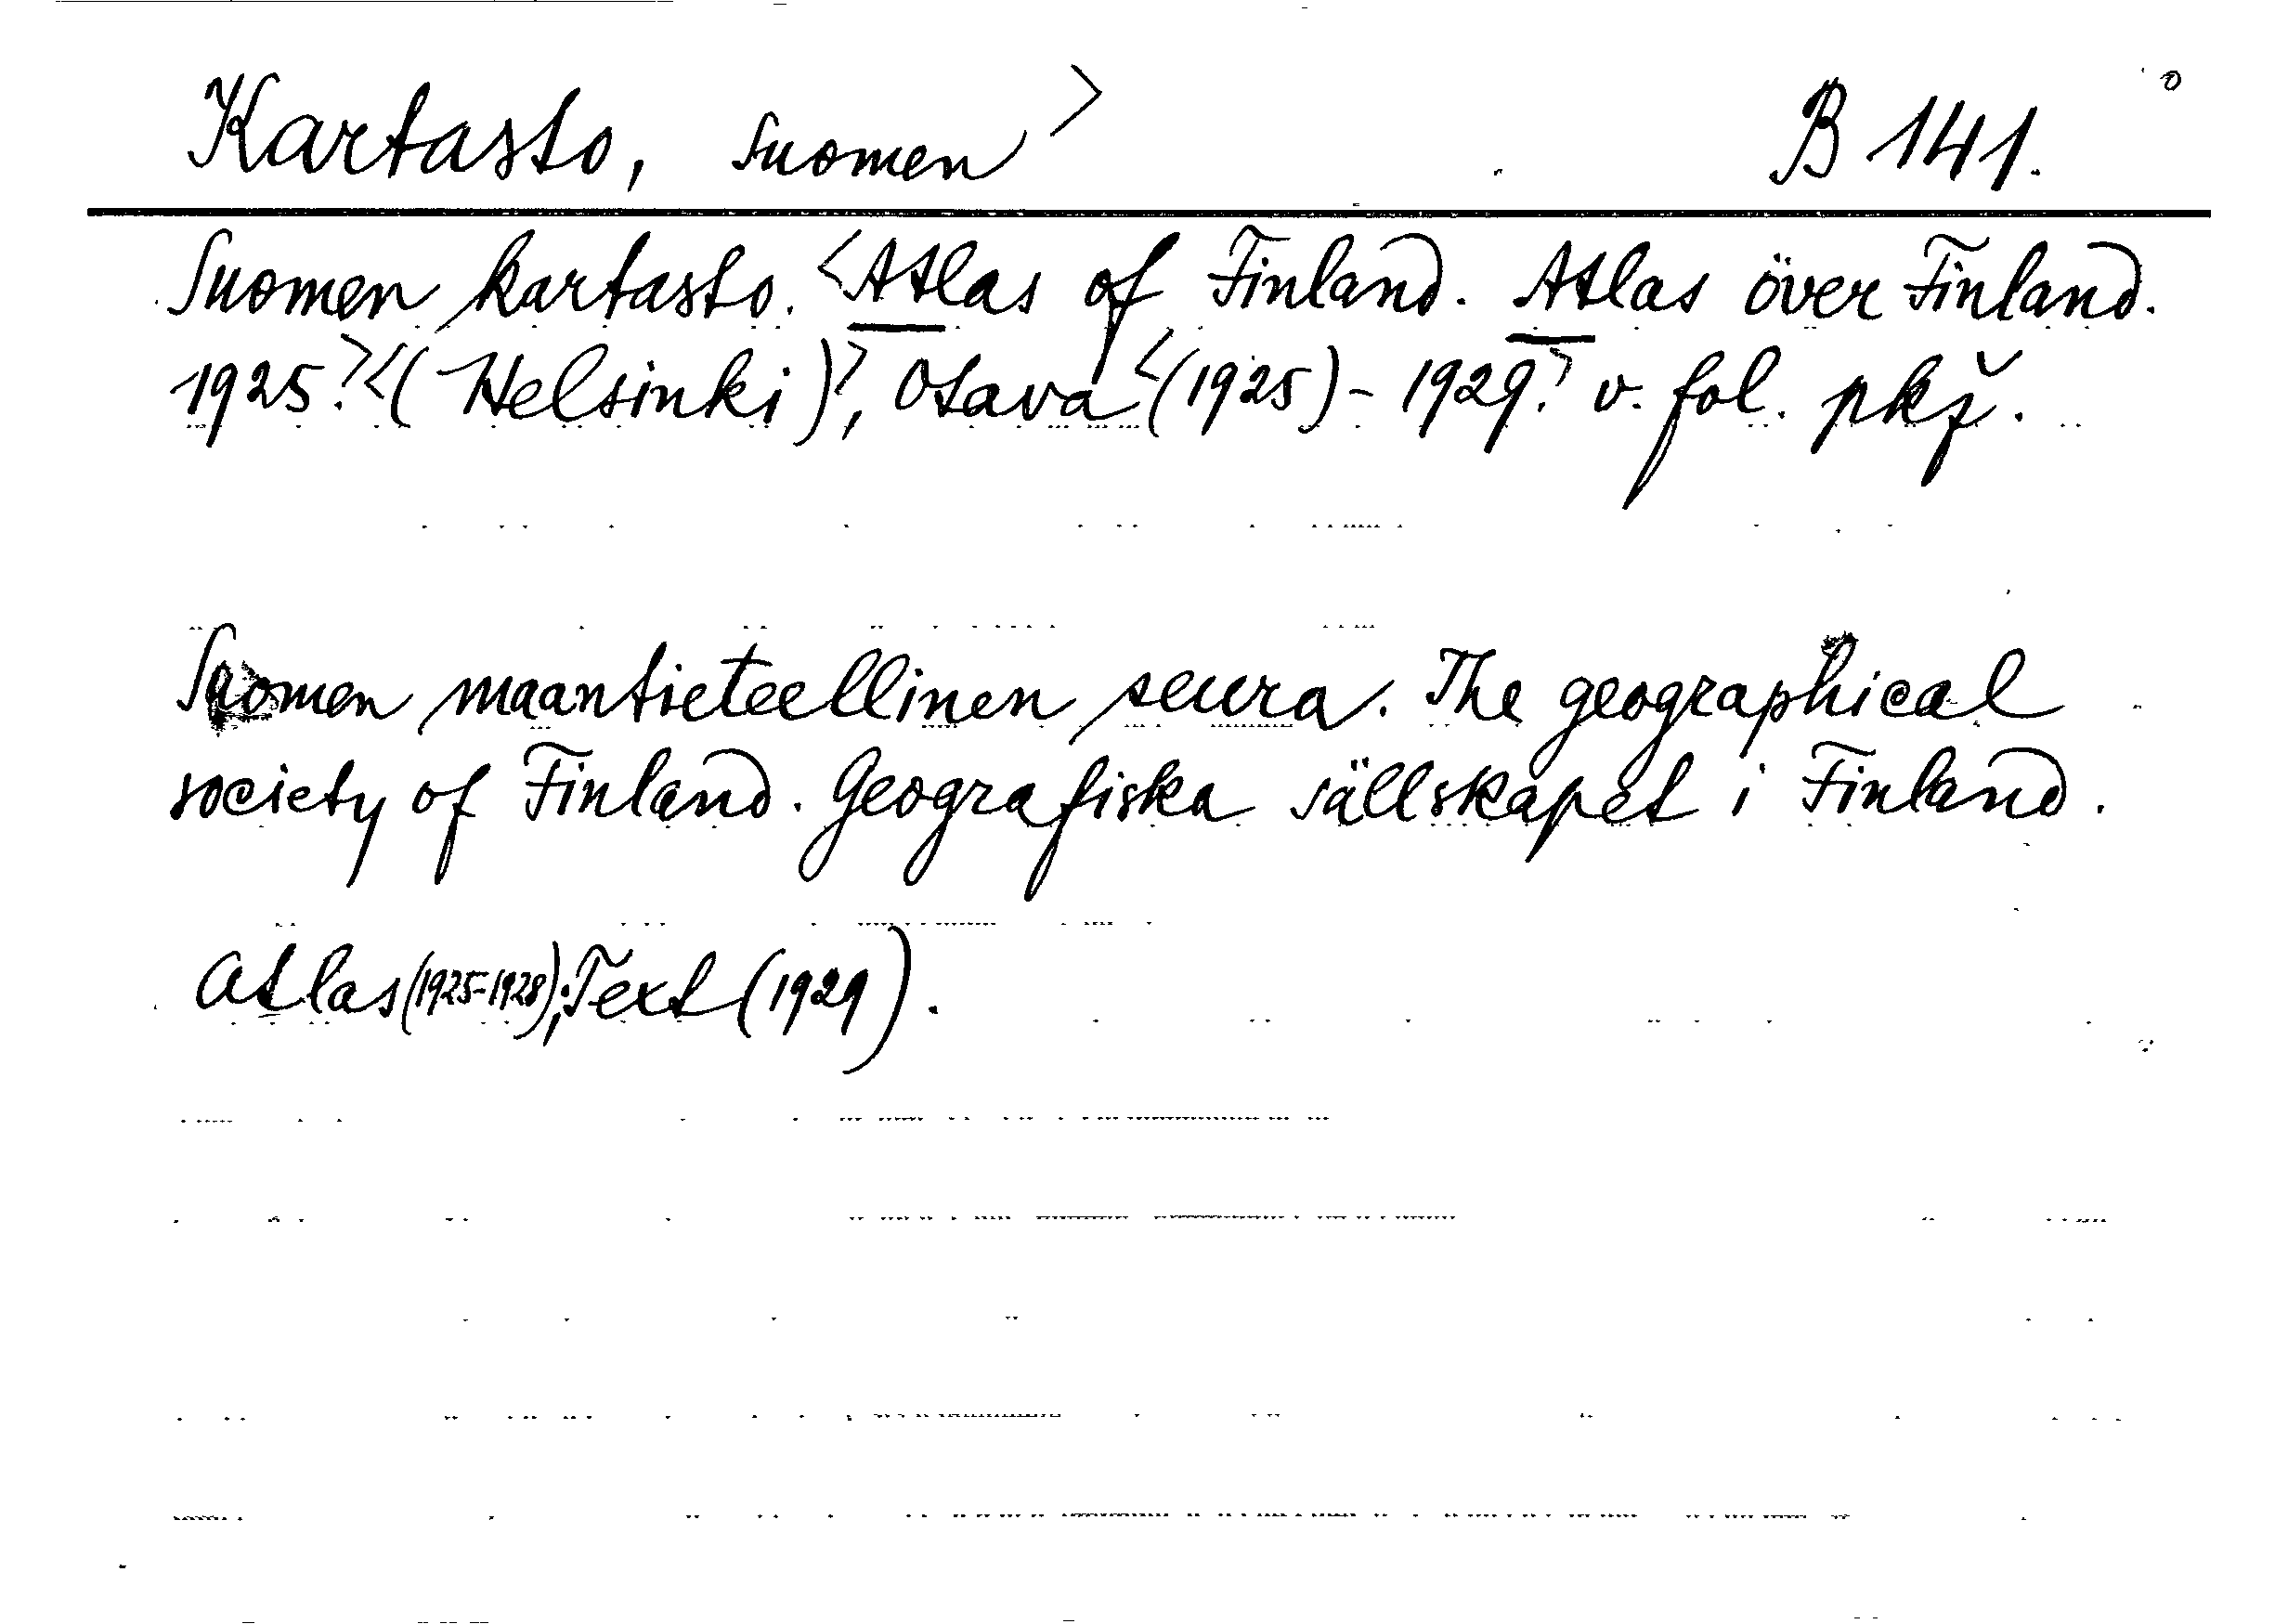 Kartasto, Suomen > B 141.
Suomen kartasto. <Atlas of Finland. Atlas över Finland.
1925.> <(Helsinki)>, Otava <(1925) - 1929.> v. fol. pkž.
Suomen maantieteellinen seura. The geographical
society of Finland. Geografiska sällskapet i Finland.
Atlas (1925-1928); Text (1929).